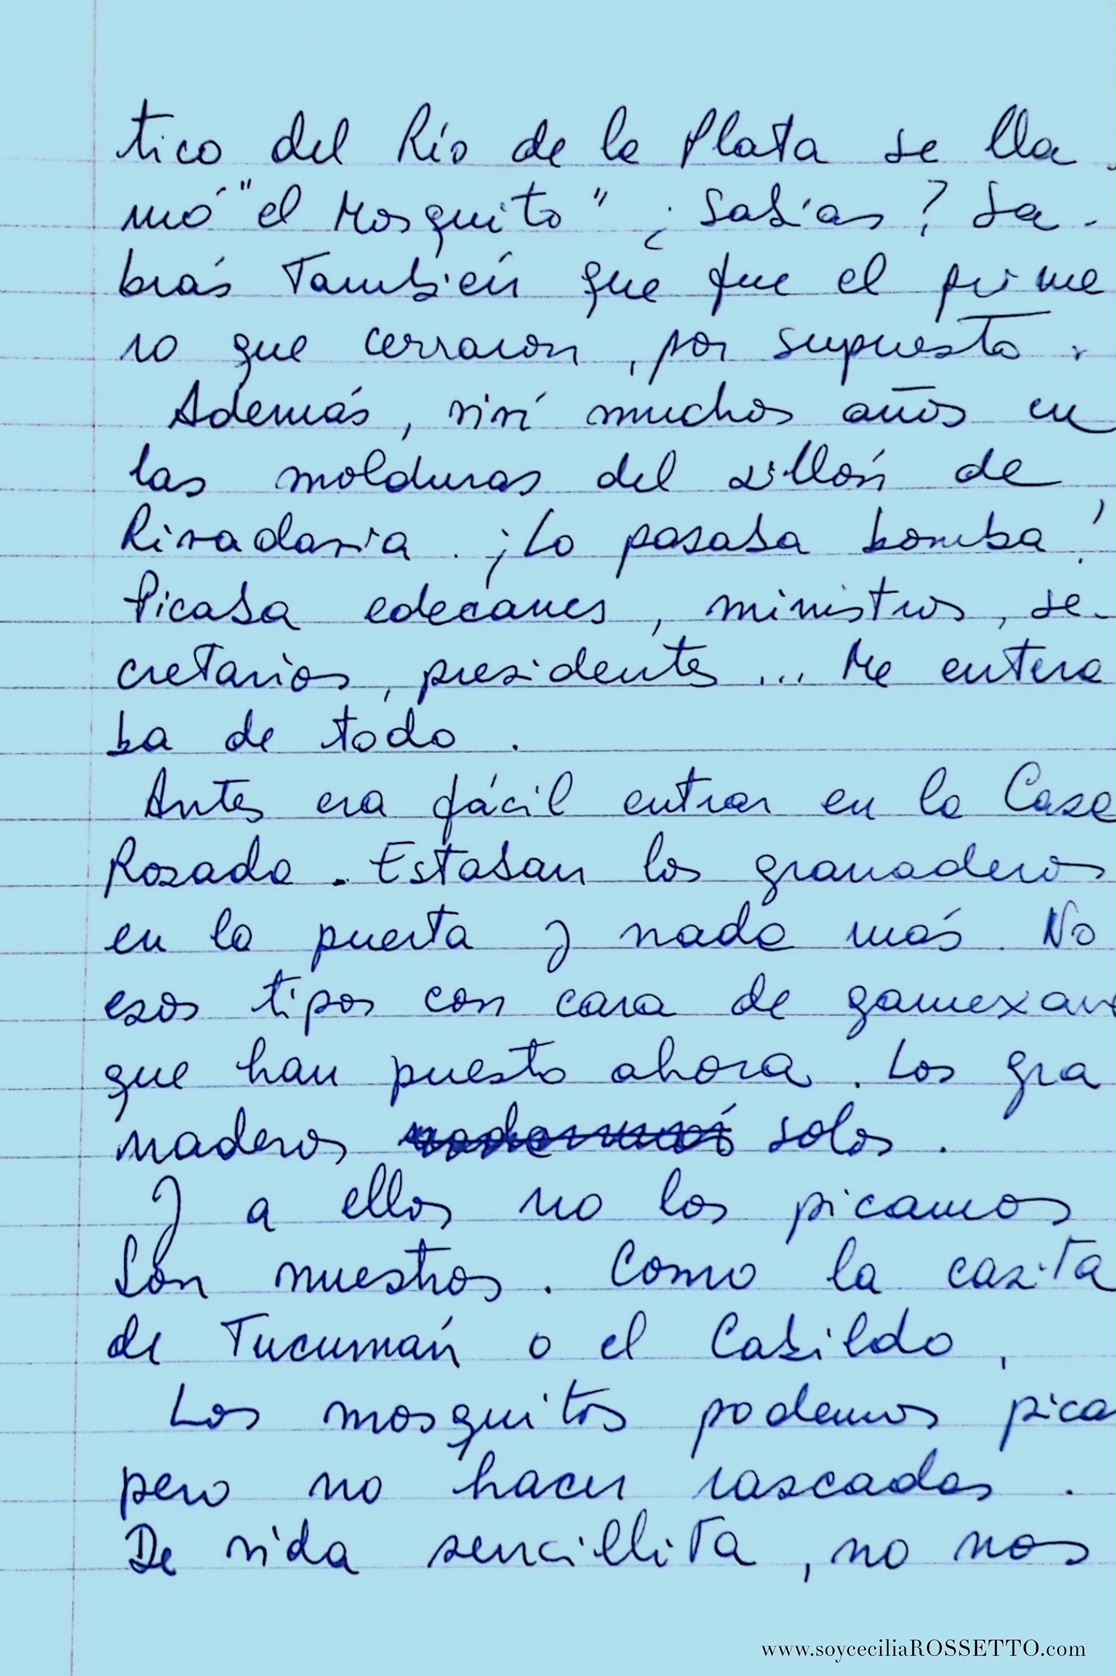 tico del Río de la Plata se lla-
mó "el Mosquito" ¿Sabías? Sa-
brás También que fue el prime
ro que cerraron, por supuesto.
Además, viví muchos años en
las molduras del sillón de
Rivadavia. ¡Lo pasaba bomba!
Picaba edecanes, ministros, se-
cretarios, presidentes... Me entera
ba de todo.
Antes era fácil entrar en la Casa
Rosada. Estaban los granaderos
en la puerta y nada más. No
esos tipos con cara de gamexane
que han puesto ahora. Los gra
naderos solos.
Y a ellos no los picamos
Son nuestros. Como la casita
de Tucumán o el Cabildo,
Los mosquitos podemos pica
pero no hacer rascadas.
De vida sencillita, no nos
www.soyceciliaROSSETTO.com